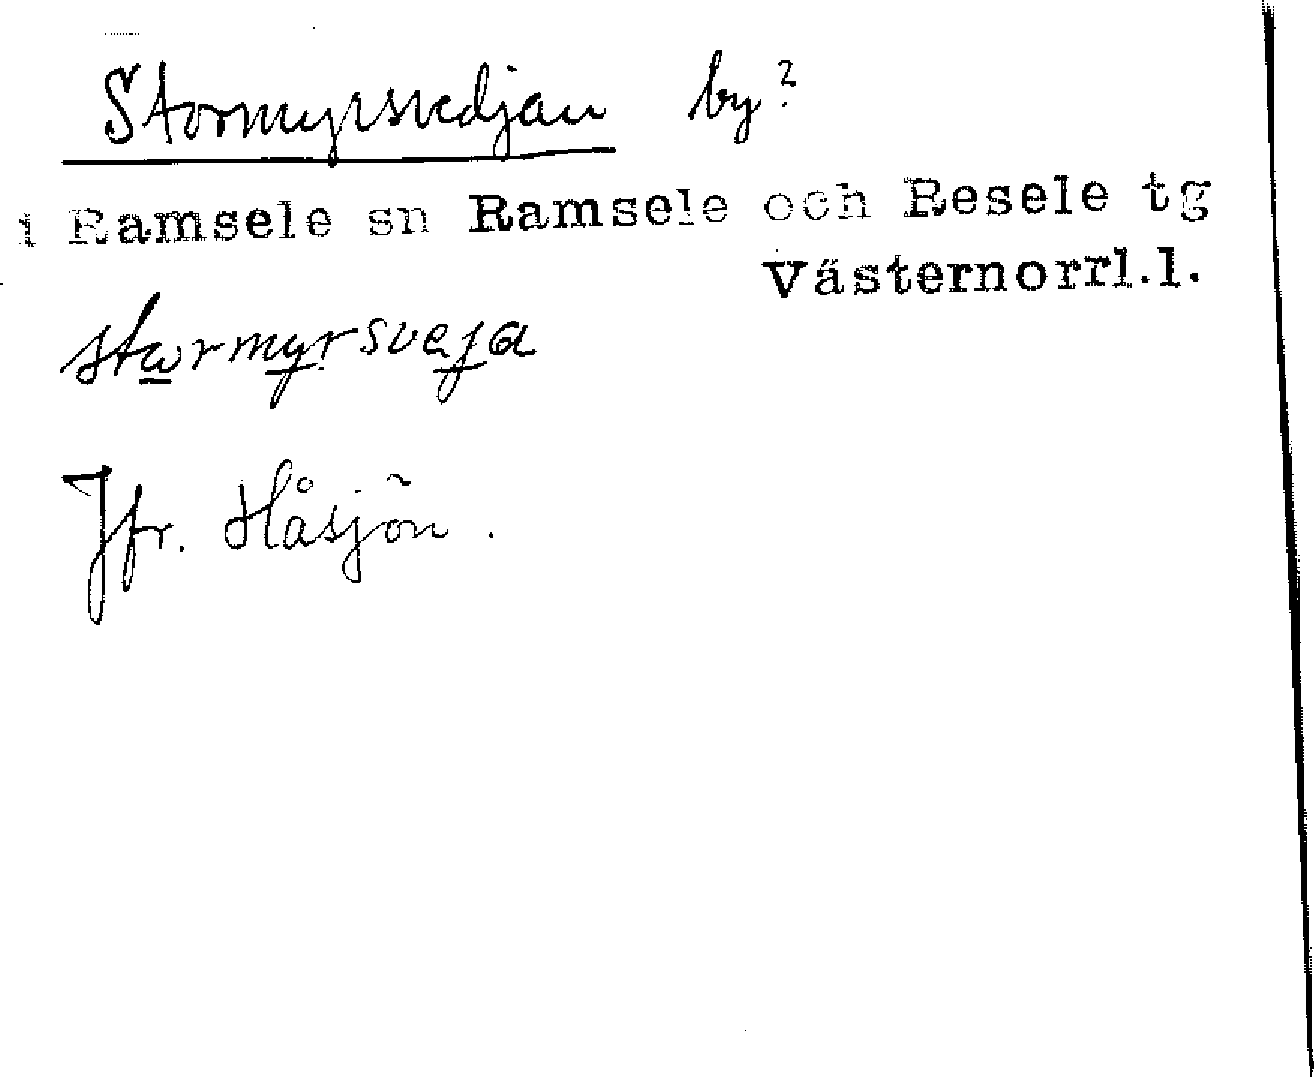 Stormyrsvedjan by?
i Ramsele sn Ramsele och Resele tg
Västernorrl.l.
stωrmyrsveja
Jfr. Håsjön.